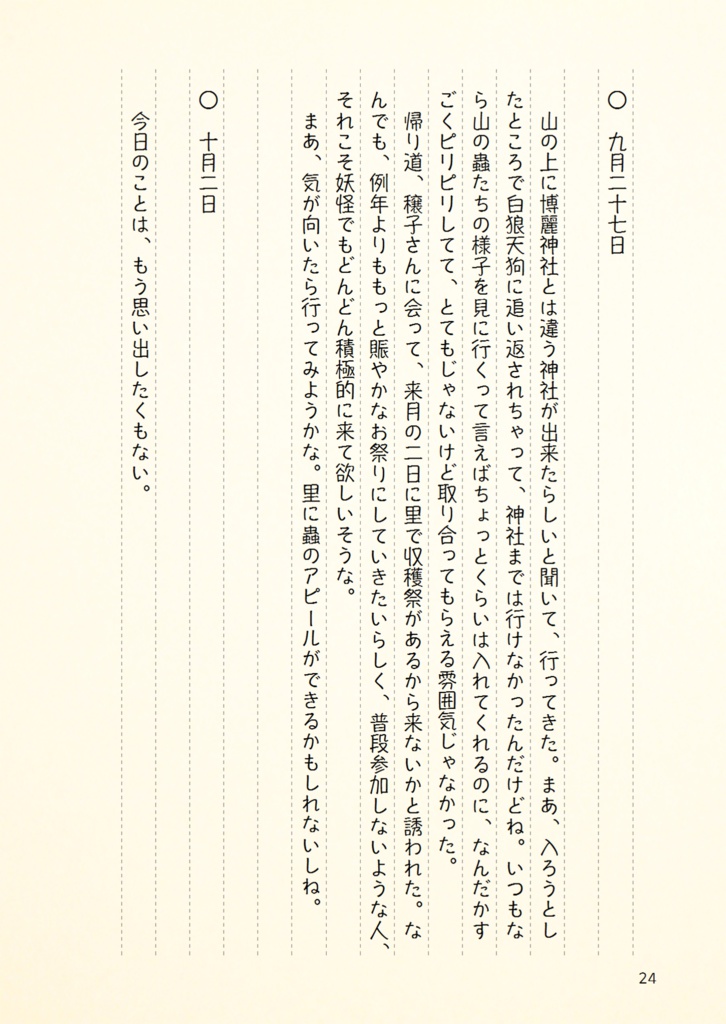 〇　九月二十七日
山の上に博麗神社とは違う神社が出来たらしいと聞いて、行ってきた。まあ、入ろうとし
たところで白狼天狗に追い返されちゃって、神社までは行けなかったんだけどね。いつもな
ら山の蟲たちの様子を見に行くって言えばちょっとくらいは入れてくれるのに、なんだかす
ごくピリピリしてて、とてもじゃないけど取り合ってもらえる雰囲気じゃなかった。
帰り道、穣子さんに会って、来月の二日に里で収穫祭があるから来ないかと誘われた。な
んでも、例年よりももっと賑やかなお祭りにしていきたいらしく、普段参加しないような人、
それこそ妖怪でもどんどん積極的に来て欲しいそうな。
まあ、気が向いたら行ってみようかな。里に蟲のアピールができるかもしれないしね。
〇　十月二日
今日のことは、もう思い出したくもない。
24